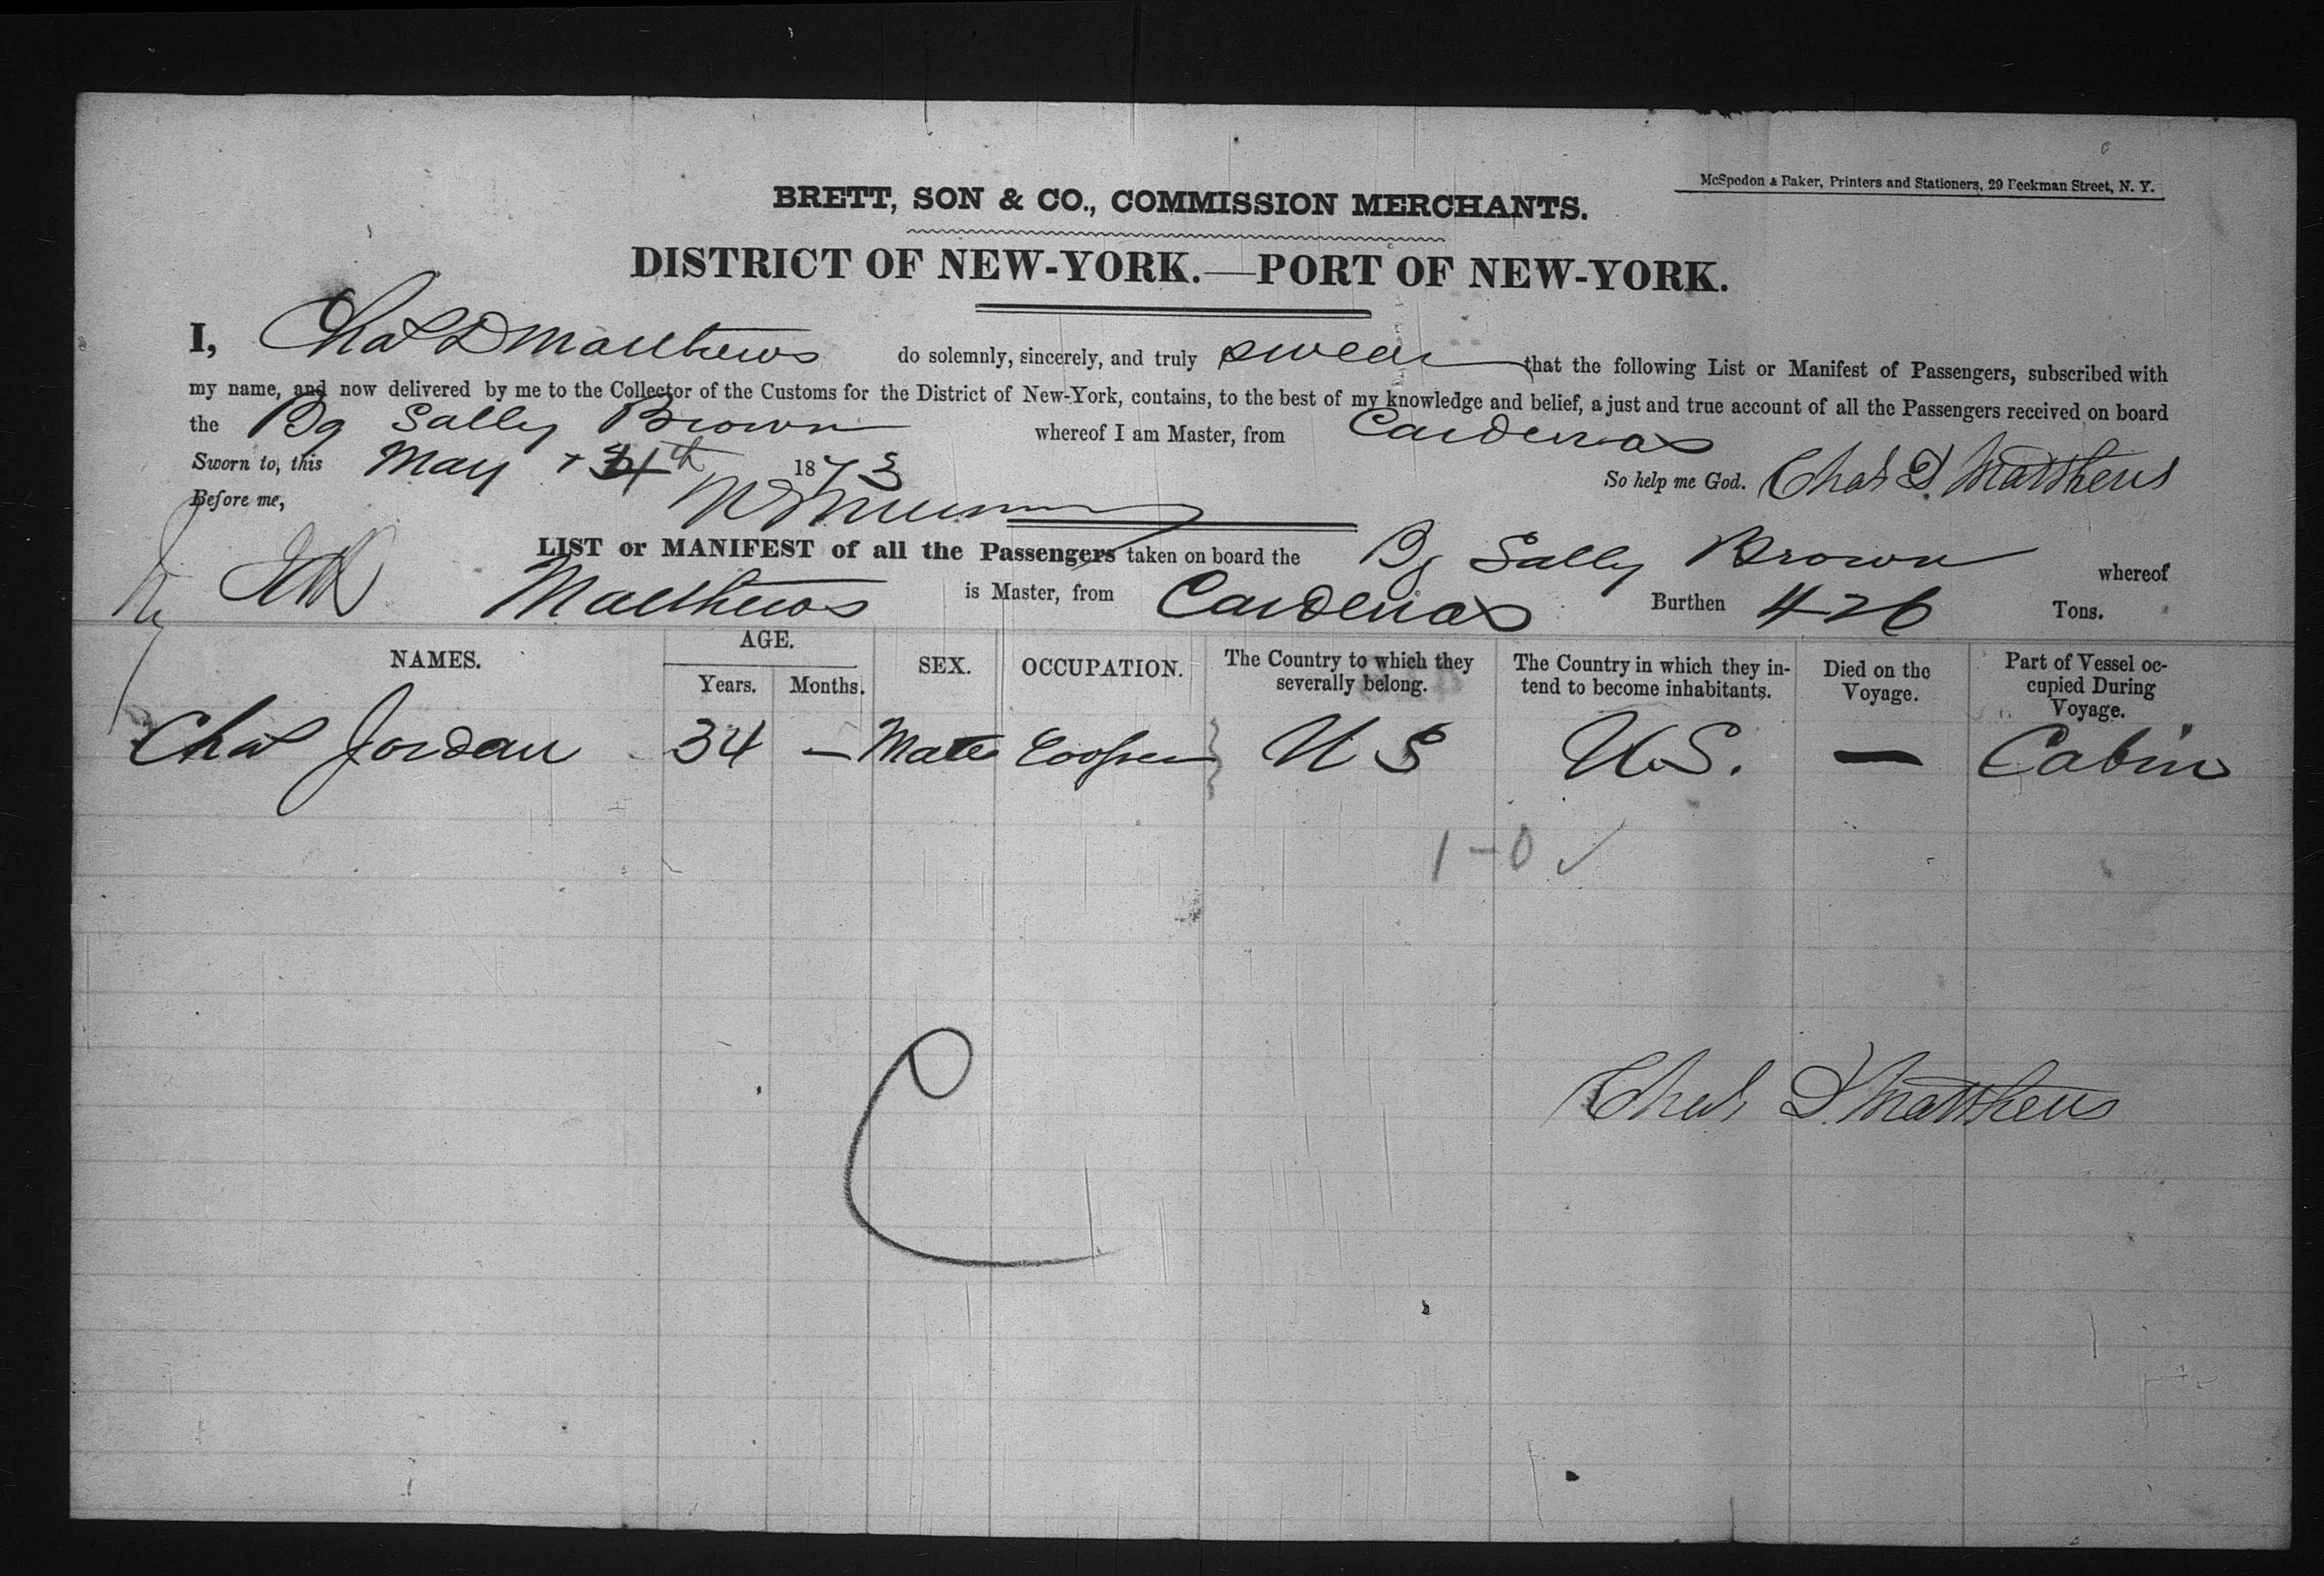 McSpedon & Baker, Printers and Stationers, 29 Beekman Street, N. Y.
BRETT, SON & CO., COMMISSION MERCHANTS.
DISTRICT OF NEW-YORK.—PORT OF NEW-YORK.
I, Chas D Matthews do solemnly, sincerely, and truly swear that the following List or Manifest of Passengers, subscribed with
my name, and now delivered by me to the Collector of the Customs for the District of New-York, contains, to the best of my knowledge and belief, a just and true account of all the Passengers received on board
the Bg Sally Brown whereof I am Master, from Cardenas
Sworn to, this May 1873 So help me God. Chas D. Matthews
Before me,
LIST or MANIFEST of all the Passengers taken on board the Bg Sally Brown whereof
Matthews is Master, from Cardenas Burthen 426 Tons.
NAMES. AGE. Years. Months. SEX. OCCUPATION. The Country to which they severally belong. The Country in which they intend to become inhabitants. Died on the Voyage. Part of Vessel occupied During Voyage.
Chas Jordan 34 — Male Cooper U S U.S. — Cabin
1-0 ✓
Chas D. Matthews
C